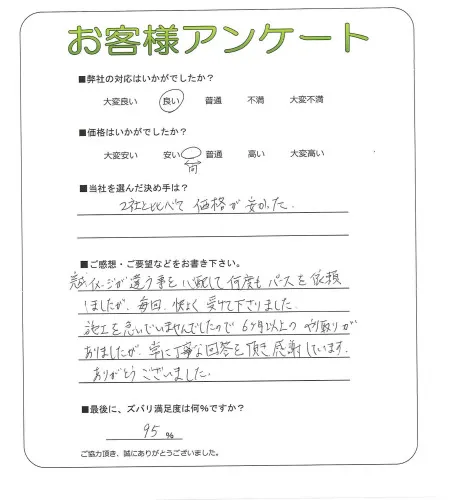 お客様アンケート
■弊社の対応はいかがでしたか？
大変良い 良い 普通 不満 大変不満
■価格はいかがでしたか？
大変安い 安い 普通 高い 大変高い
■当社を選んだ決め手は？
2社と比べて 価格が安かった.
■ご感想・ご要望などをお書き下さい。
イメージが違う事を心配して何度もパースを依頼
しましたが、毎回、快よく受けて下さりました.
施工を急いでいませんでしたので 6ヶ月以上の やり取りが
ありましたが、常に丁寧な回答を頂き感謝しています.
ありがとうございました.
■最後に、ズバリ満足度は何%ですか？
95 %
ご協力頂き、誠にありがとうございました。